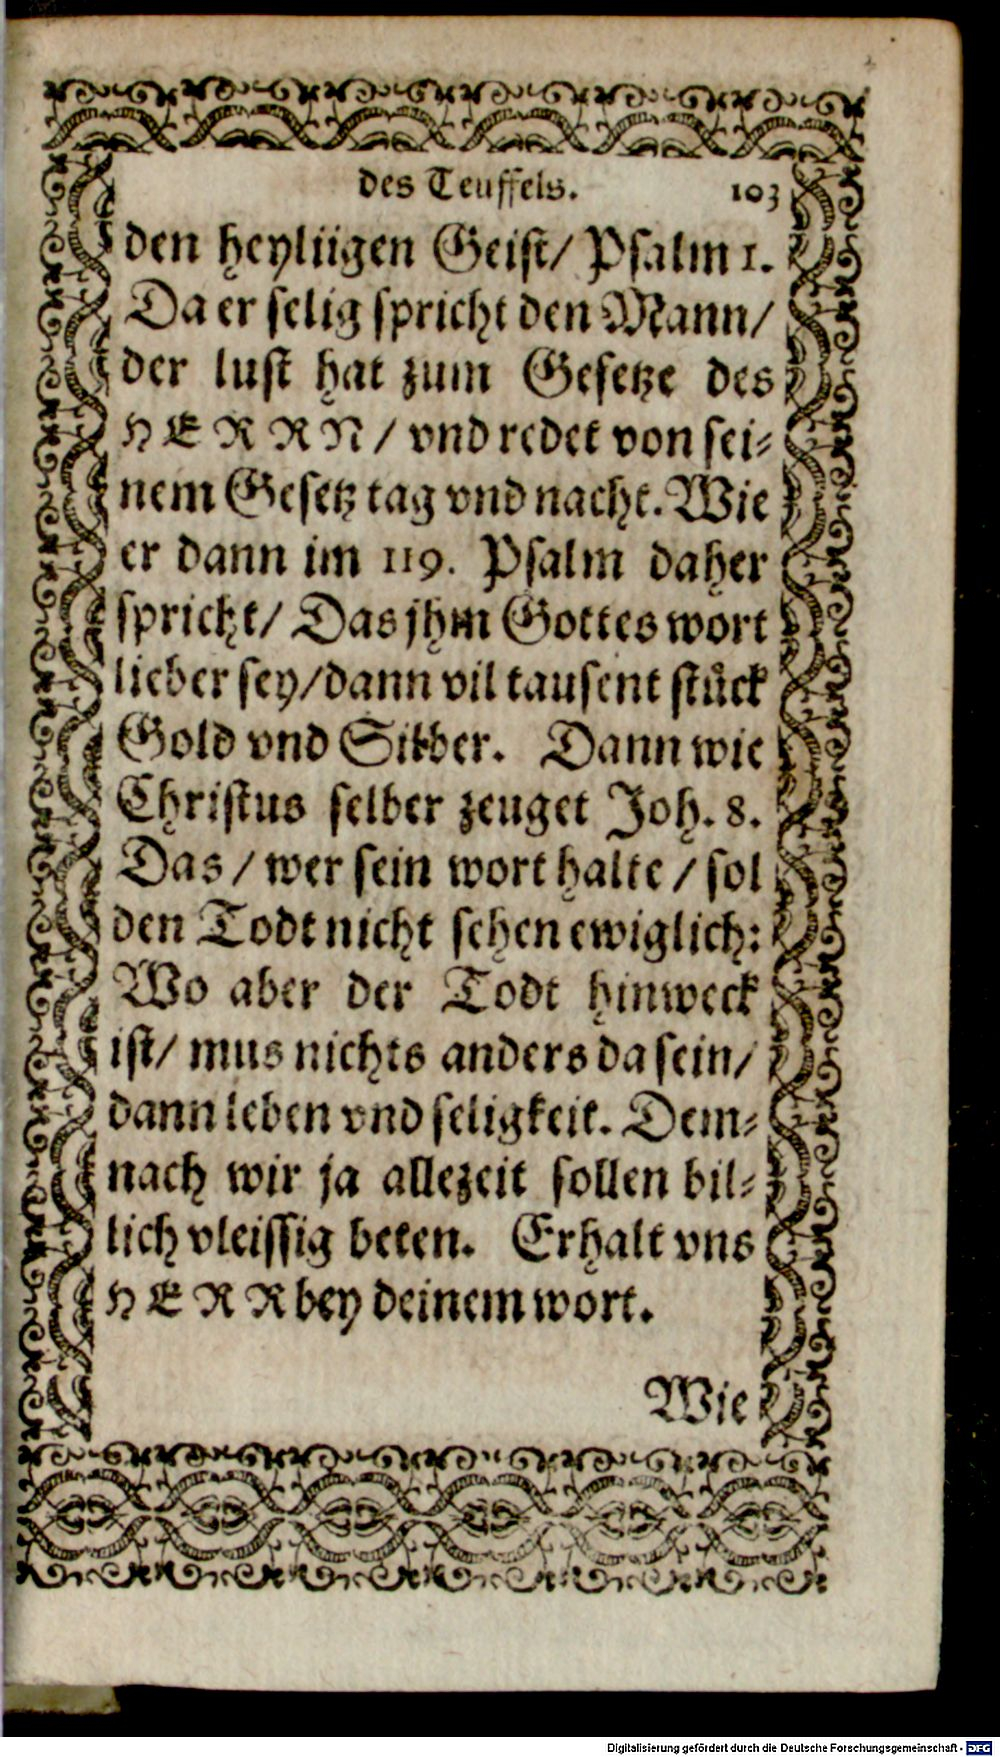 des Teuffels. 103
den heyliigen Geist/ Psalm 1.
Da er selig spricht den Mann/
der lust hat zum Gesetze des
HERRN/ vnd redet von sei⸗
nem Gesetz tag vnd nacht. Wie
er dann im 119. Psalm daher
spricht/ Das jhm Gottes wort
lieber sey/dann vil tausent stuͤck
Gold vnd Silber. Dann wie
Christus selber zeuget Joh. 8.
Das/ wer sein wort halte/ sol
den Todt nicht sehen ewiglich:
Wo aber der Todt hinweck
ist/ mus nichts anders da sein/
dann leben vnd seligkeit. Dem⸗
nach wir ja allezeit sollen bil⸗
lich vleissig beten. Erhalt vns
HERR bey deinem wort.
Wie
Digitalisierung gefördert durch die Deutsche Forschungsgemeinschaft - DFG